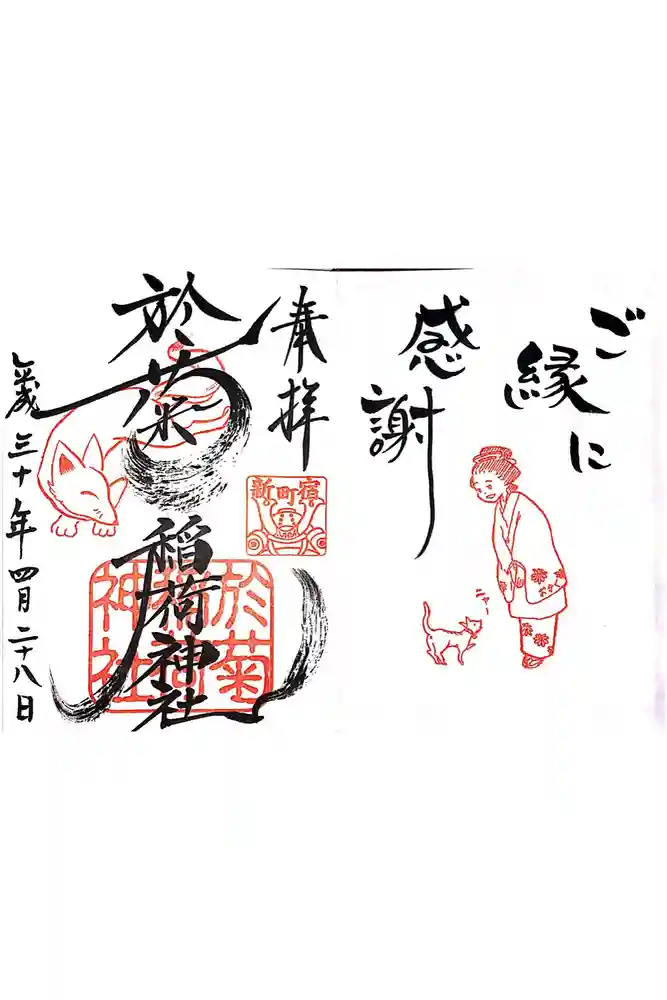 ご縁に
感謝
ニャー
奉拝
新町宿
於菊
稲荷神社
於菊
稲荷
神社
歳三十年四月二十八日